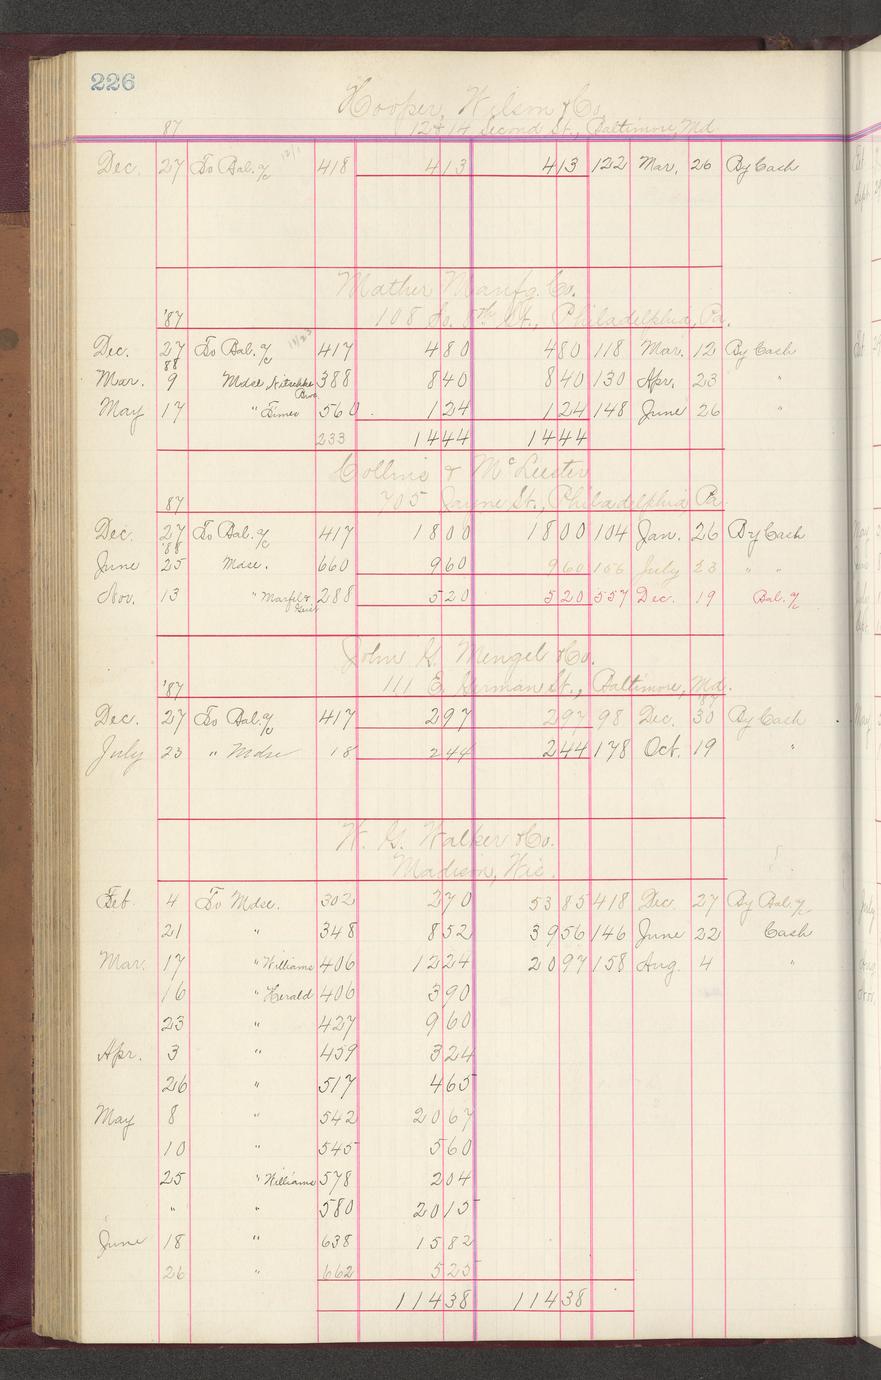 226
Hooper, Wilson & Co.
87 12 & 14 Second St., Baltimore, Md
Dec. 27 To Bal. a/c 418 413 413 122 Mar. 26 By Cash
Mather Manfg. Co.
'87 108 So. St., Philadelphia, Pa.
Dec. 27 To Bal. a/c 417 480 480 118 Mar. 12 By Cash
88
Mar. 9 Mdse Nitschke Bros. 388 840 840 130 Apr. 23 "
May 17 " Times 560 124 124 148 June 26 "
233 1444 1444
Collins & McLeester
87 705 Jayne St., Philadelphia Pa.
Dec. 27 To Bal. a/c 417 1800 1800 104 Jan. 26 By Cash
'88
June 25 Mdse. 660 960 960 156 July 23 " "
Nov. 13 " 288 520 520 557 Dec. 19 Bal. a/c
John G. Mengel & Co.
'87 111 E. German St., Baltimore, Md.
'87
Dec. 27 To Bal. a/c 417 297 297 98 Dec. 30 By Cash
July 23 " Mdse 18 244 244 178 Oct. 19 "
W. G. Walker & Co.
Madison, Wis.
Feb. 4 To Mdse. 302 270 5385 418 Dec. 27 By Bal. a/c
21 " 348 852 3956 146 June 22 Cash
Mar. 17 " Williams 406 1224 2097 158 Aug. 4 "
16 " Herald 406 390
23 " 427 960
Apr. 3 " 459 324
26 " 517 465
May 8 " 542 2067
10 " 545 560
25 " Williams 578 204
" " 580 2015
June 18 " 638 1582
26 " 662 525
11438 11438